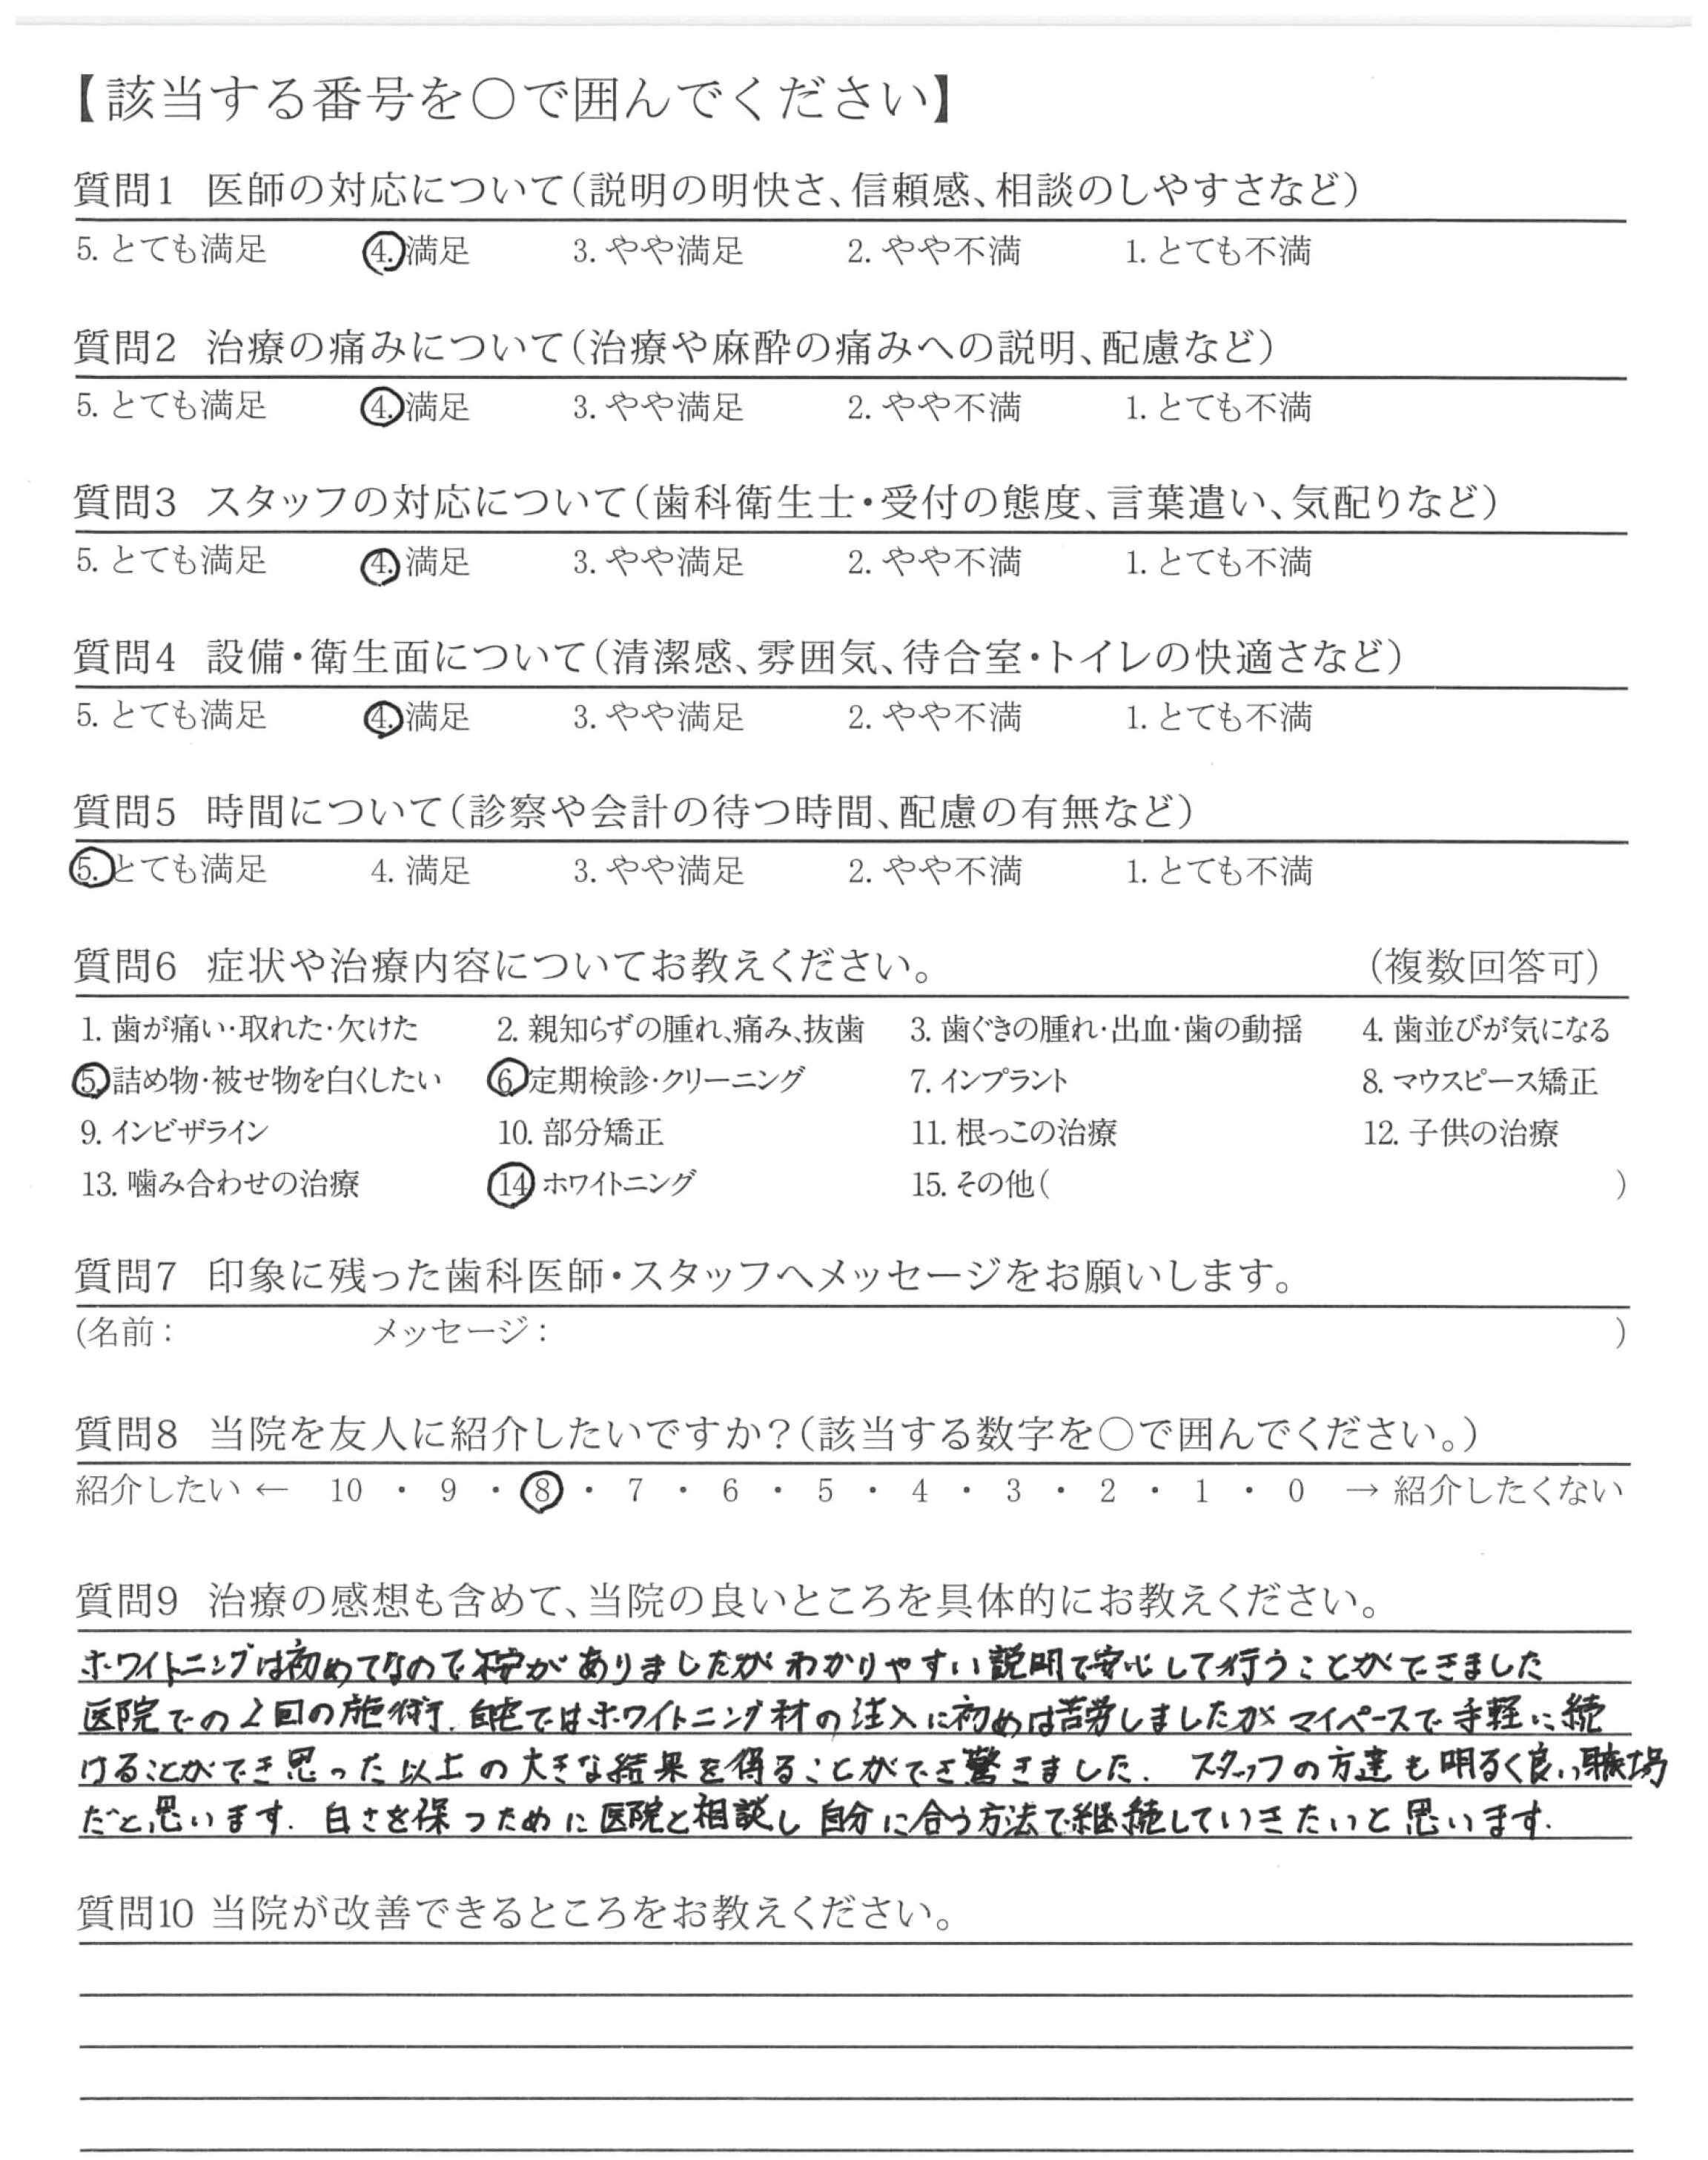 【該当する番号を〇で囲んでください】
質問1 医師の対応について(説明の明快さ、信頼感、相談のしやすさなど)
5. とても満足 4. 満足 3. やや満足 2. やや不満 1. とても不満
質問2 治療の痛みについて(治療や麻酔の痛みへの説明、配慮など)
5. とても満足 4. 満足 3. やや満足 2. やや不満 1. とても不満
質問3 スタッフの対応について(歯科衛生士・受付の態度、言葉遣い、気配りなど)
5. とても満足 4. 満足 3. やや満足 2. やや不満 1. とても不満
質問4 設備・衛生面について(清潔感、雰囲気、待合室・トイレの快適さなど)
5. とても満足 4. 満足 3. やや満足 2. やや不満 1. とても不満
質問5 時間について(診察や会計の待つ時間、配慮の有無など)
5. とても満足 4. 満足 3. やや満足 2. やや不満 1. とても不満
質問6 症状や治療内容についてお教えください。 (複数回答可)
1. 歯が痛い・取れた・欠けた 2. 親知らずの腫れ、痛み、抜歯 3. 歯ぐきの腫れ・出血・歯の動揺 4. 歯並びが気になる
5. 詰め物・被せ物を白くしたい 6. 定期検診・クリーニング 7. インプラント 8. マウスピース矯正
9. インビザライン 10. 部分矯正 11. 根っこの治療 12. 子供の治療
13. 噛み合わせの治療 14. ホワイトニング 15. その他( )
質問7 印象に残った歯科医師・スタッフへメッセージをお願いします。
(名前: メッセージ: )
質問8 当院を友人に紹介したいですか?(該当する数字を〇で囲んでください。)
紹介したい ← 10 ・ 9 ・ 8 ・ 7 ・ 6 ・ 5 ・ 4 ・ 3 ・ 2 ・ 1 ・ 0 → 紹介したくない
質問9 治療の感想も含めて、当院の良いところを具体的にお教えください。
ホワイトニングは初めてなので不安がありましたがわかりやすい説明で安心して行うことができました
医院での2回の施術、自宅ではホワイトニング材の注入に初めは苦労しましたがマイペースで手軽に続
けることができ思った以上の大きな結果を得ることができ驚きました. スタッフの方達も明るく良い職場
だと思います. 白さを保つために医院と相談し自分に合う方法で継続していきたいと思います.
質問10 当院が改善できるところをお教えください。